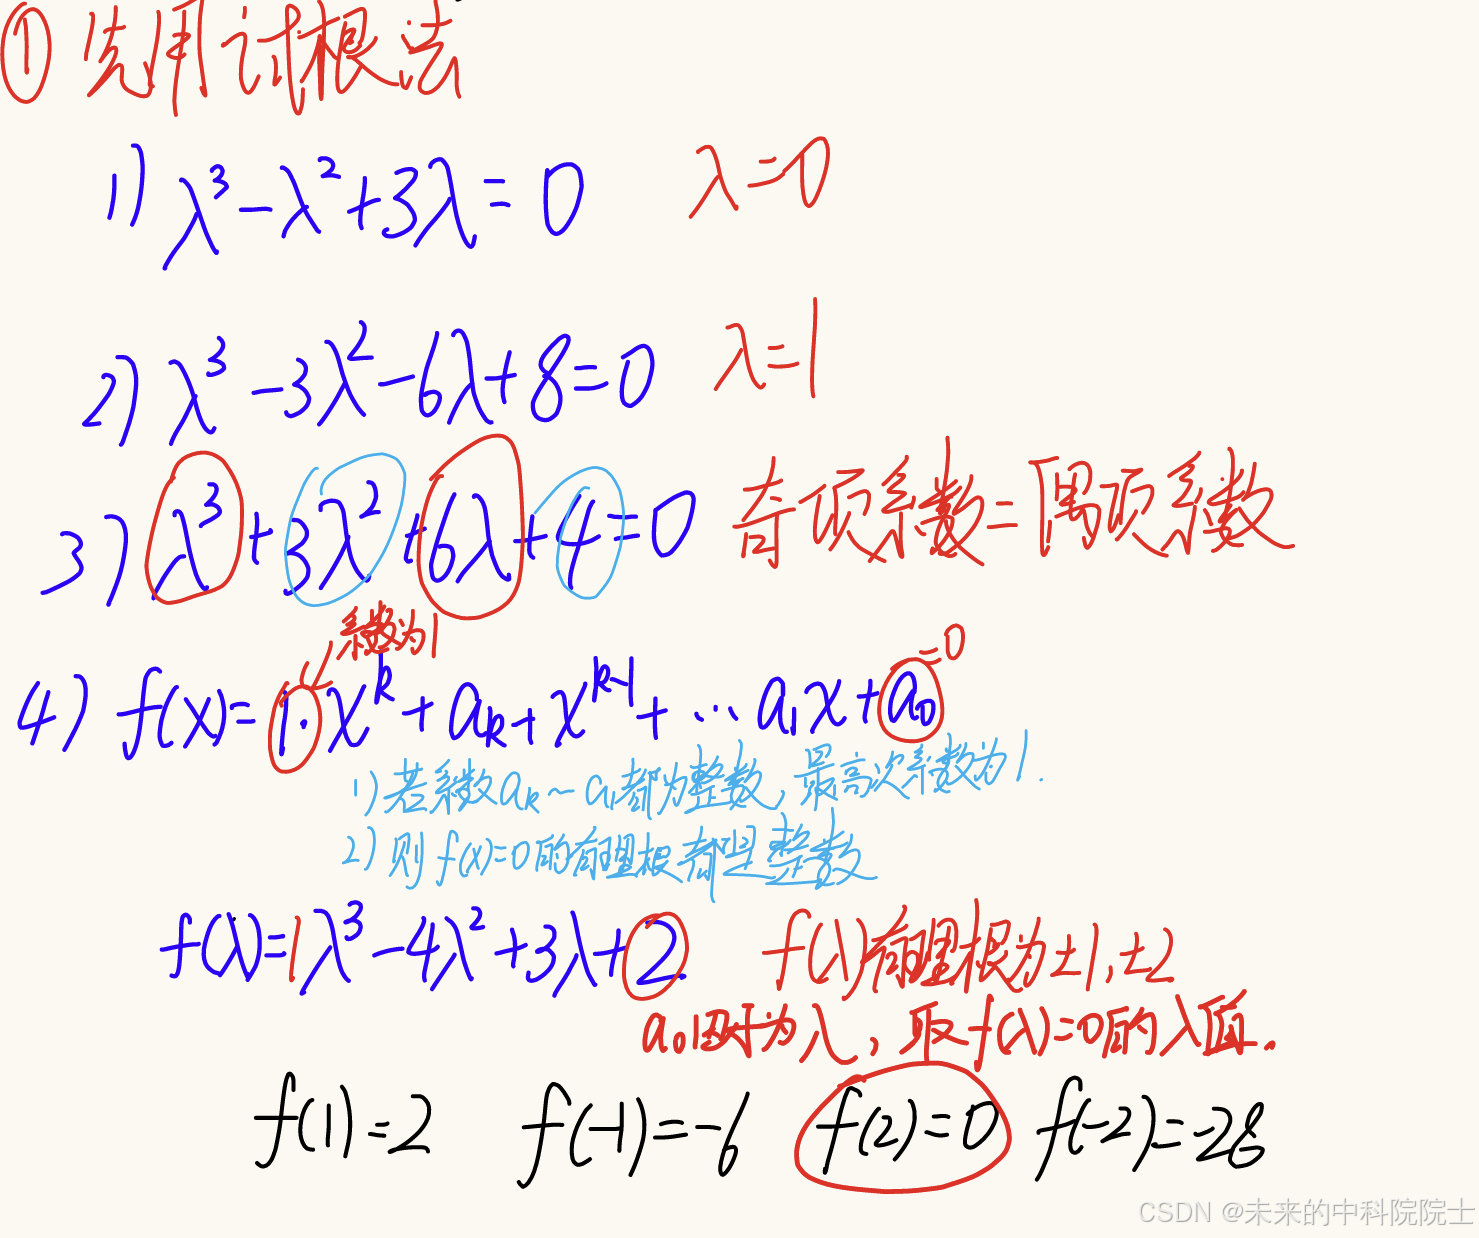 ① 先用试根法
1) λ³-λ²+3λ=0 λ=0
2) λ³-3λ²-6λ+8=0 λ=1
3) λ³+3λ²+6λ+4=0 奇项系数=偶项系数
系数为1
4) f(x)=1·x^k+a_{k-1}x^{k-1}+…a₁x+a₀=0
1)若系数a_k~a₁都为整数,最高次系数为1.
2)则f(x)=0的有理根都是整数
f(λ)=1λ³-4λ²+3λ+2 f(λ)有理根为±1,±2
a₀因子为λ,取f(λ)=0的λ值.
f(1)=2 f(-1)=-6 f(2)=0 f(-2)=-28
CSDN @未来的中科院院士